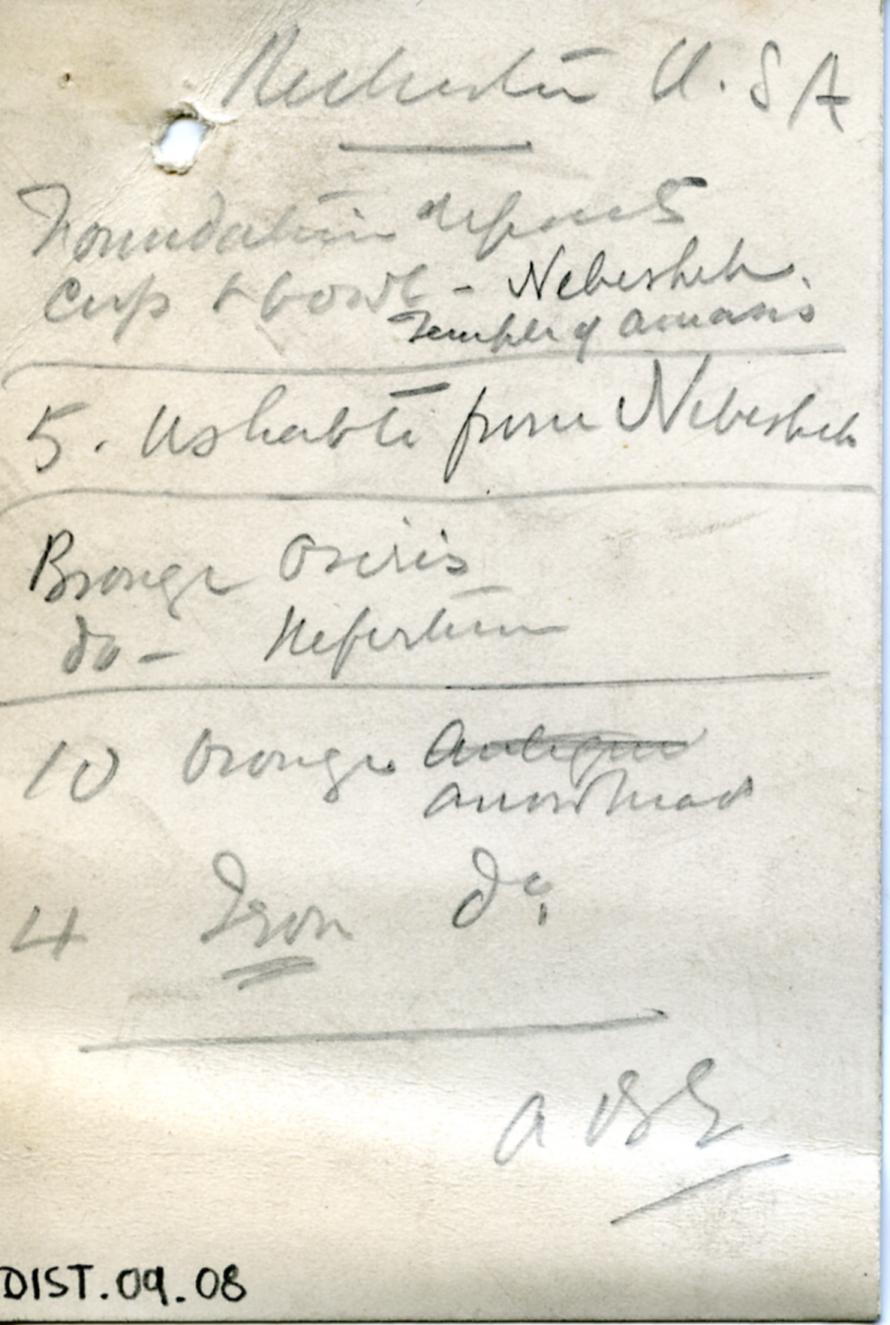 Rochester U.S A
Foundation deposits
Cup & bowl - Nebesheh.
Temple of Amasis
5. Ushabti from Nebesheh
Bronze Osiris
do - Nefertum
10 bronze Antique
arrowhead
4 Iron do
DIST.09.08